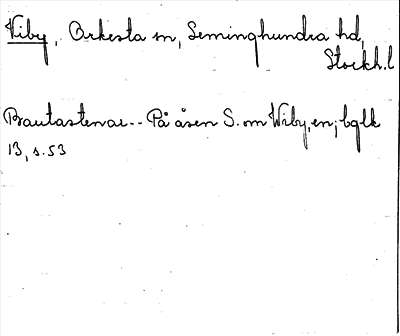 Viby, Orkesta sn, Seminghundra hd,
Stockh.l
Bautastenar -- På åsen S. om Wiby, en; bglk
13, s. 53